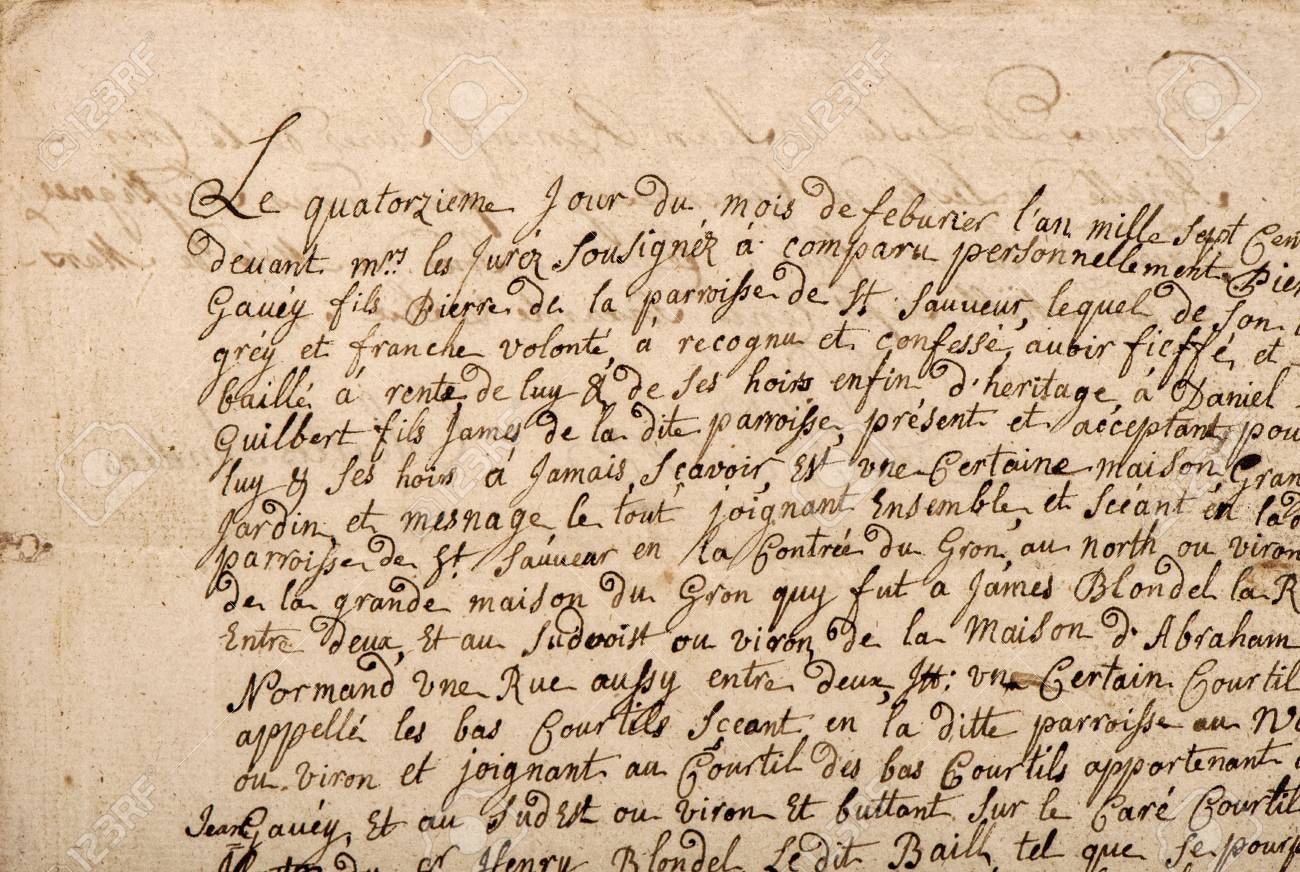 Le quatorzieme Jour du mois de feburier l'an mille sept Cen
devant mrs les Juréz Sousignéz à comparu personnellement Pier
Gavéy fils Pierre de la parroisse de St Sauveur, lequel de son
gréy et franche volonté, à recognu et confessé avoir fieffé et
baillé à rente de luy & de ses hoirs enfin d'heritage à Daniel
Guilbert fils James de la dite parroisse, présent et accéptant pou
luy & ses hoirs à Jamais, sçavoir, Est vne Certaine maison, Gran
Jardin et mesnage le tout joignant Ensemble, et scéant én la d
parroisse de St. Sauveur en la Contrée du Gron, au north ou viron
de la grande maison du Gron quy fut a James Blondel la R
Entre deux, Et au Sudvoist ou viron de la Maison d'Abraham
Normand vne Rue aussy entre deux, Itt: vn Certain Courtil
appellé les bas Courtils sçeant en la ditte parroisse au No
ou viron et joignant au Courtil des bas Courtils appartenant
Jean Gavéy, Et au SudEst ou viron Et buttant sur le Caré Courtil
du Sr Henry Blondel Ledit Bail tel que se pourp
123RF